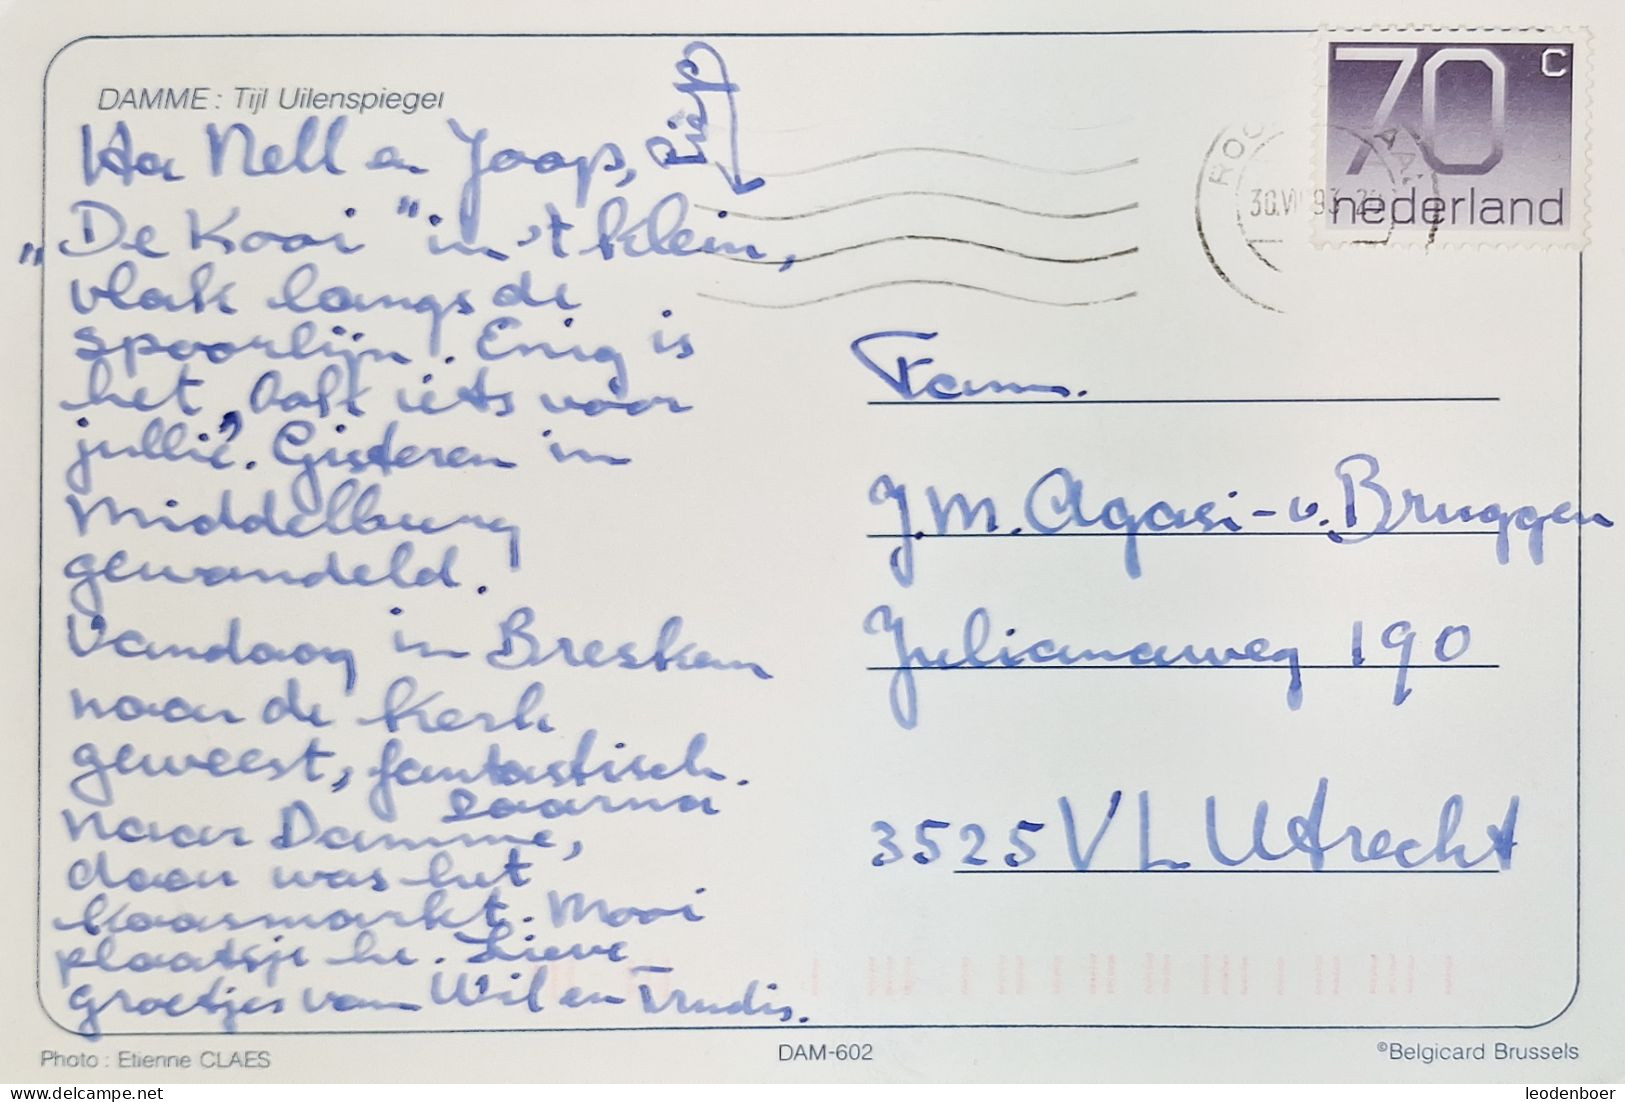 DAMME: Tijl Uilenspiegel
Ha Nell en Joop,
Piep
"De Kooi" in 't klein,
vlak langs de
spoorlijn. Enig is
het, ook iets voor
jullie. Gisteren in
Middelburg
gewandeld.
Vandaag in Breskens
naar de kerk
geweest, fantastisch.
daarna
naar Damme,
daar was het
kaasmarkt. Mooi
plaatsje he. Lieve
groetjes van Wil en Trudis.
70 c
nederland
ROO
30.VII.93
Fam.
J.M. Agasi-v. Bruggen
Julianaweg 190
3525 VL Utrecht
Photo : Etienne CLAES
DAM-602
©Belgicard Brussels
leodenboer